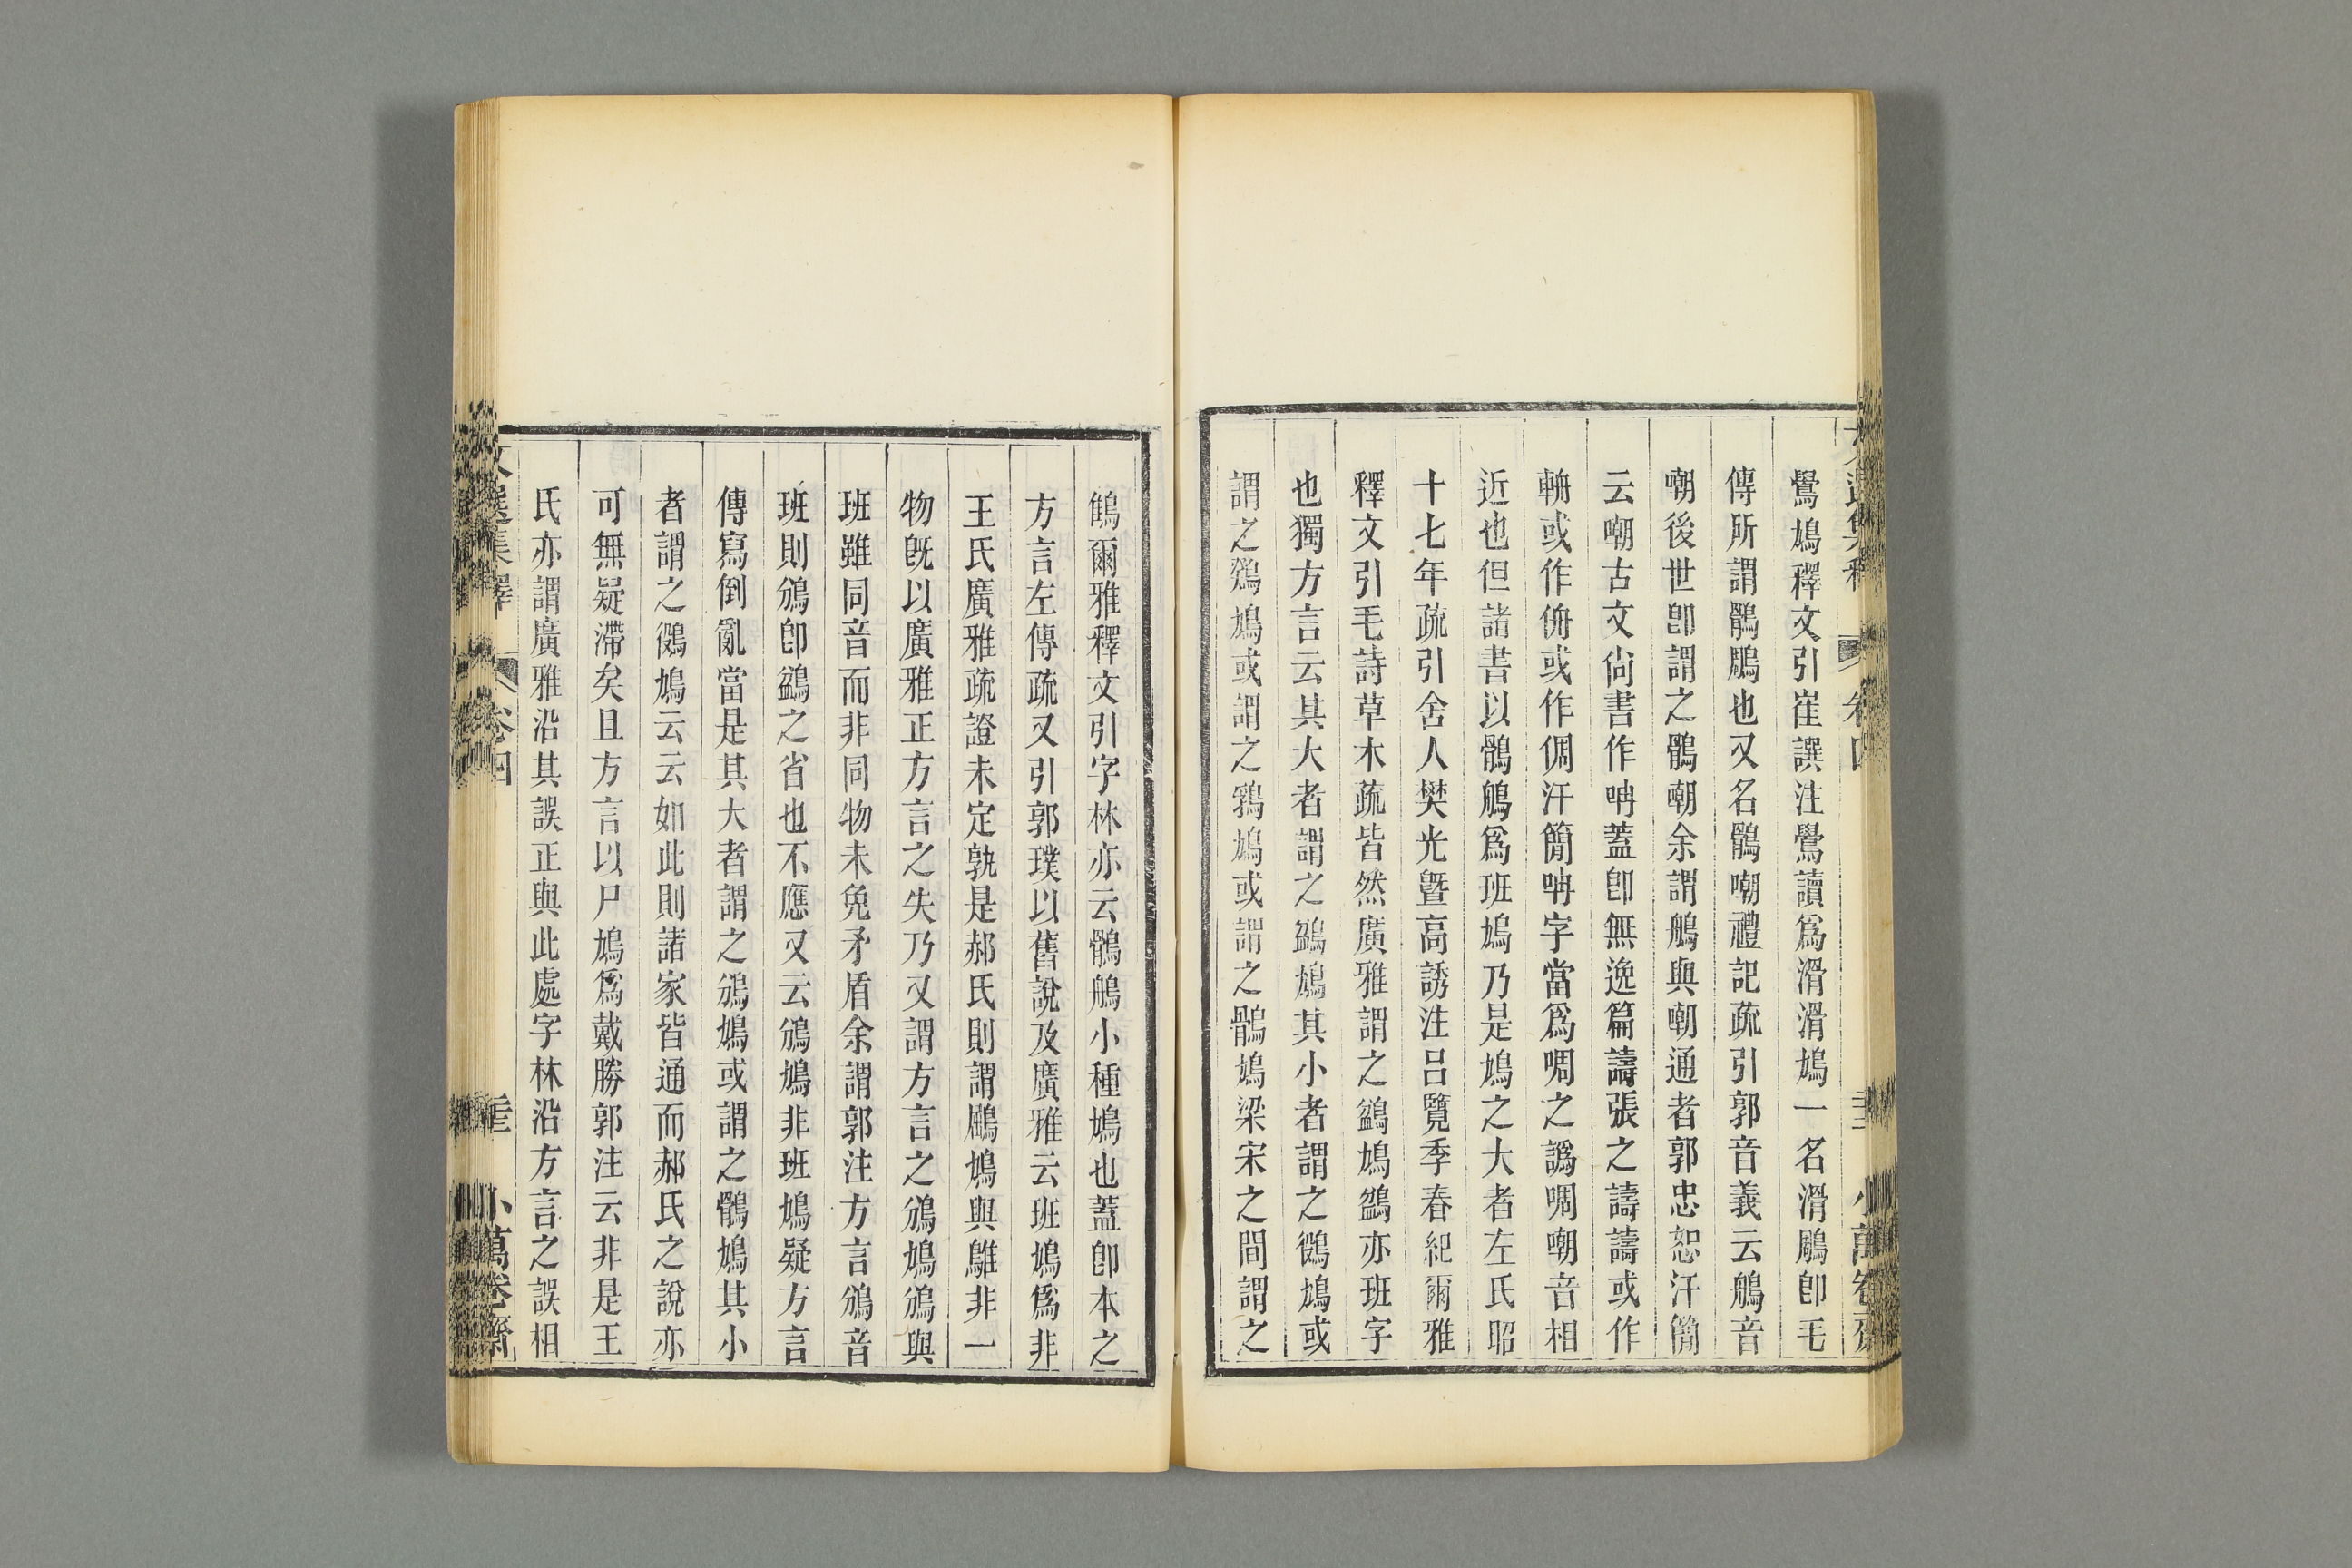 鷽鳩釋文引崔譔注鷽讀爲滑滑鳩一名滑鵰卽毛
傳所謂鶻鵰也又名鶻嘲禮記疏引郭音義云鵃音
嘲後世卽謂之鶻嘲余謂鵃與嘲通者郭忠恕汗簡
云嘲古文尙書作呥蓋卽無逸篇譸張之譸譸或作
輈或作侜或作倜汗簡呥字當爲啁之譌啁嘲音相
近也但諸書以鶻鵃爲班鳩乃是鳩之大者左氏昭
十七年疏引舍人樊光曁高誘注呂覽季春紀爾雅
釋文引毛詩草木疏皆然廣雅謂之鷭鳩鷭亦班字
也獨方言云其大者謂之鳻鳩其小者謂之鵖鳩或
謂之鶏鳩或謂之鶉鳩或謂之鶻鳩梁宋之間謂之
鵃爾雅釋文引字林亦云鶻鵃小種鳩也蓋卽本之
方言左傳疏又引郭璞以舊說及廣雅云班鳩爲非
王氏廣雅疏證未定孰是郝氏則謂鶌鳩與鵻非一
物旣以廣雅正方言之失乃又謂方言之鳻鳩鳻與
班雖同音而非同物未免矛盾余謂郭注方言鳻音
班則鳻卽鷭之省也不應又云鳻鳩非班鳩疑方言
傳寫倒亂當是其大者謂之鳻鳩或謂之鶻鳩其小
者謂之鵖鳩云云如此則諸家皆通而郝氏之說亦
可無疑滯矣且方言以尸鳩爲戴勝郭注云非是王
氏亦謂廣雅沿其誤正與此處字林沿方言之誤相
文選集釋 卷四 小萬卷齋